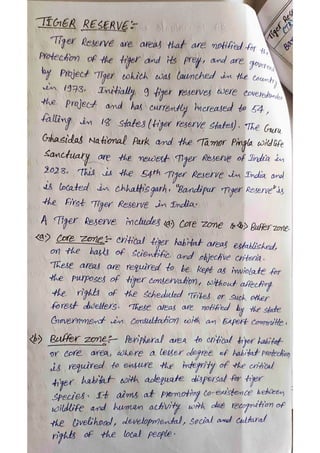 TIGER RESERVE :-
Tiger Reserve are areas that are notified for the
Protection of the tiger and its prey, and are governed
by Project Tiger which was launched in the country
in 1973. Initially 9 tiger reserves were covered under
the Project and has currently increased to 54,
falling in 18 states (tiger reserve states). The Guru
Ghasidas National Park and the Tamor Pingla Wildlife
Sanctuary are the newest Tiger Reserve of India in
2023. This is the 54th Tiger Reserve in India and
is located in Chhattisgarh, "Bandipur Tiger Reserve" is
the First Tiger Reserve in India.
A Tiger Reserve includes (a) Core zone & (b) Buffer zone
(a) Core zone :- critical tiger habitat areas established
on the basis of scientific and objective criteria.
These areas are required to be kept as inviolate for
the purposes of tiger conservation, without affecting
the rights of the Scheduled Tribes or such other
forest dwellers. These areas are notified by the state
Government in consultation with an Expert Committee.
(b) Buffer zone :- Peripheral area to critical tiger habitat
or core area, where a lesser degree of habitat protection
is required to ensure the integrity of the critical
tiger habitat with adequate dispersal for tiger
species. It aims at promoting co-existence between
wildlife and human activity with due recognition of
the livelihood, developmental, social and cultural
rights of the local people.
Tiger